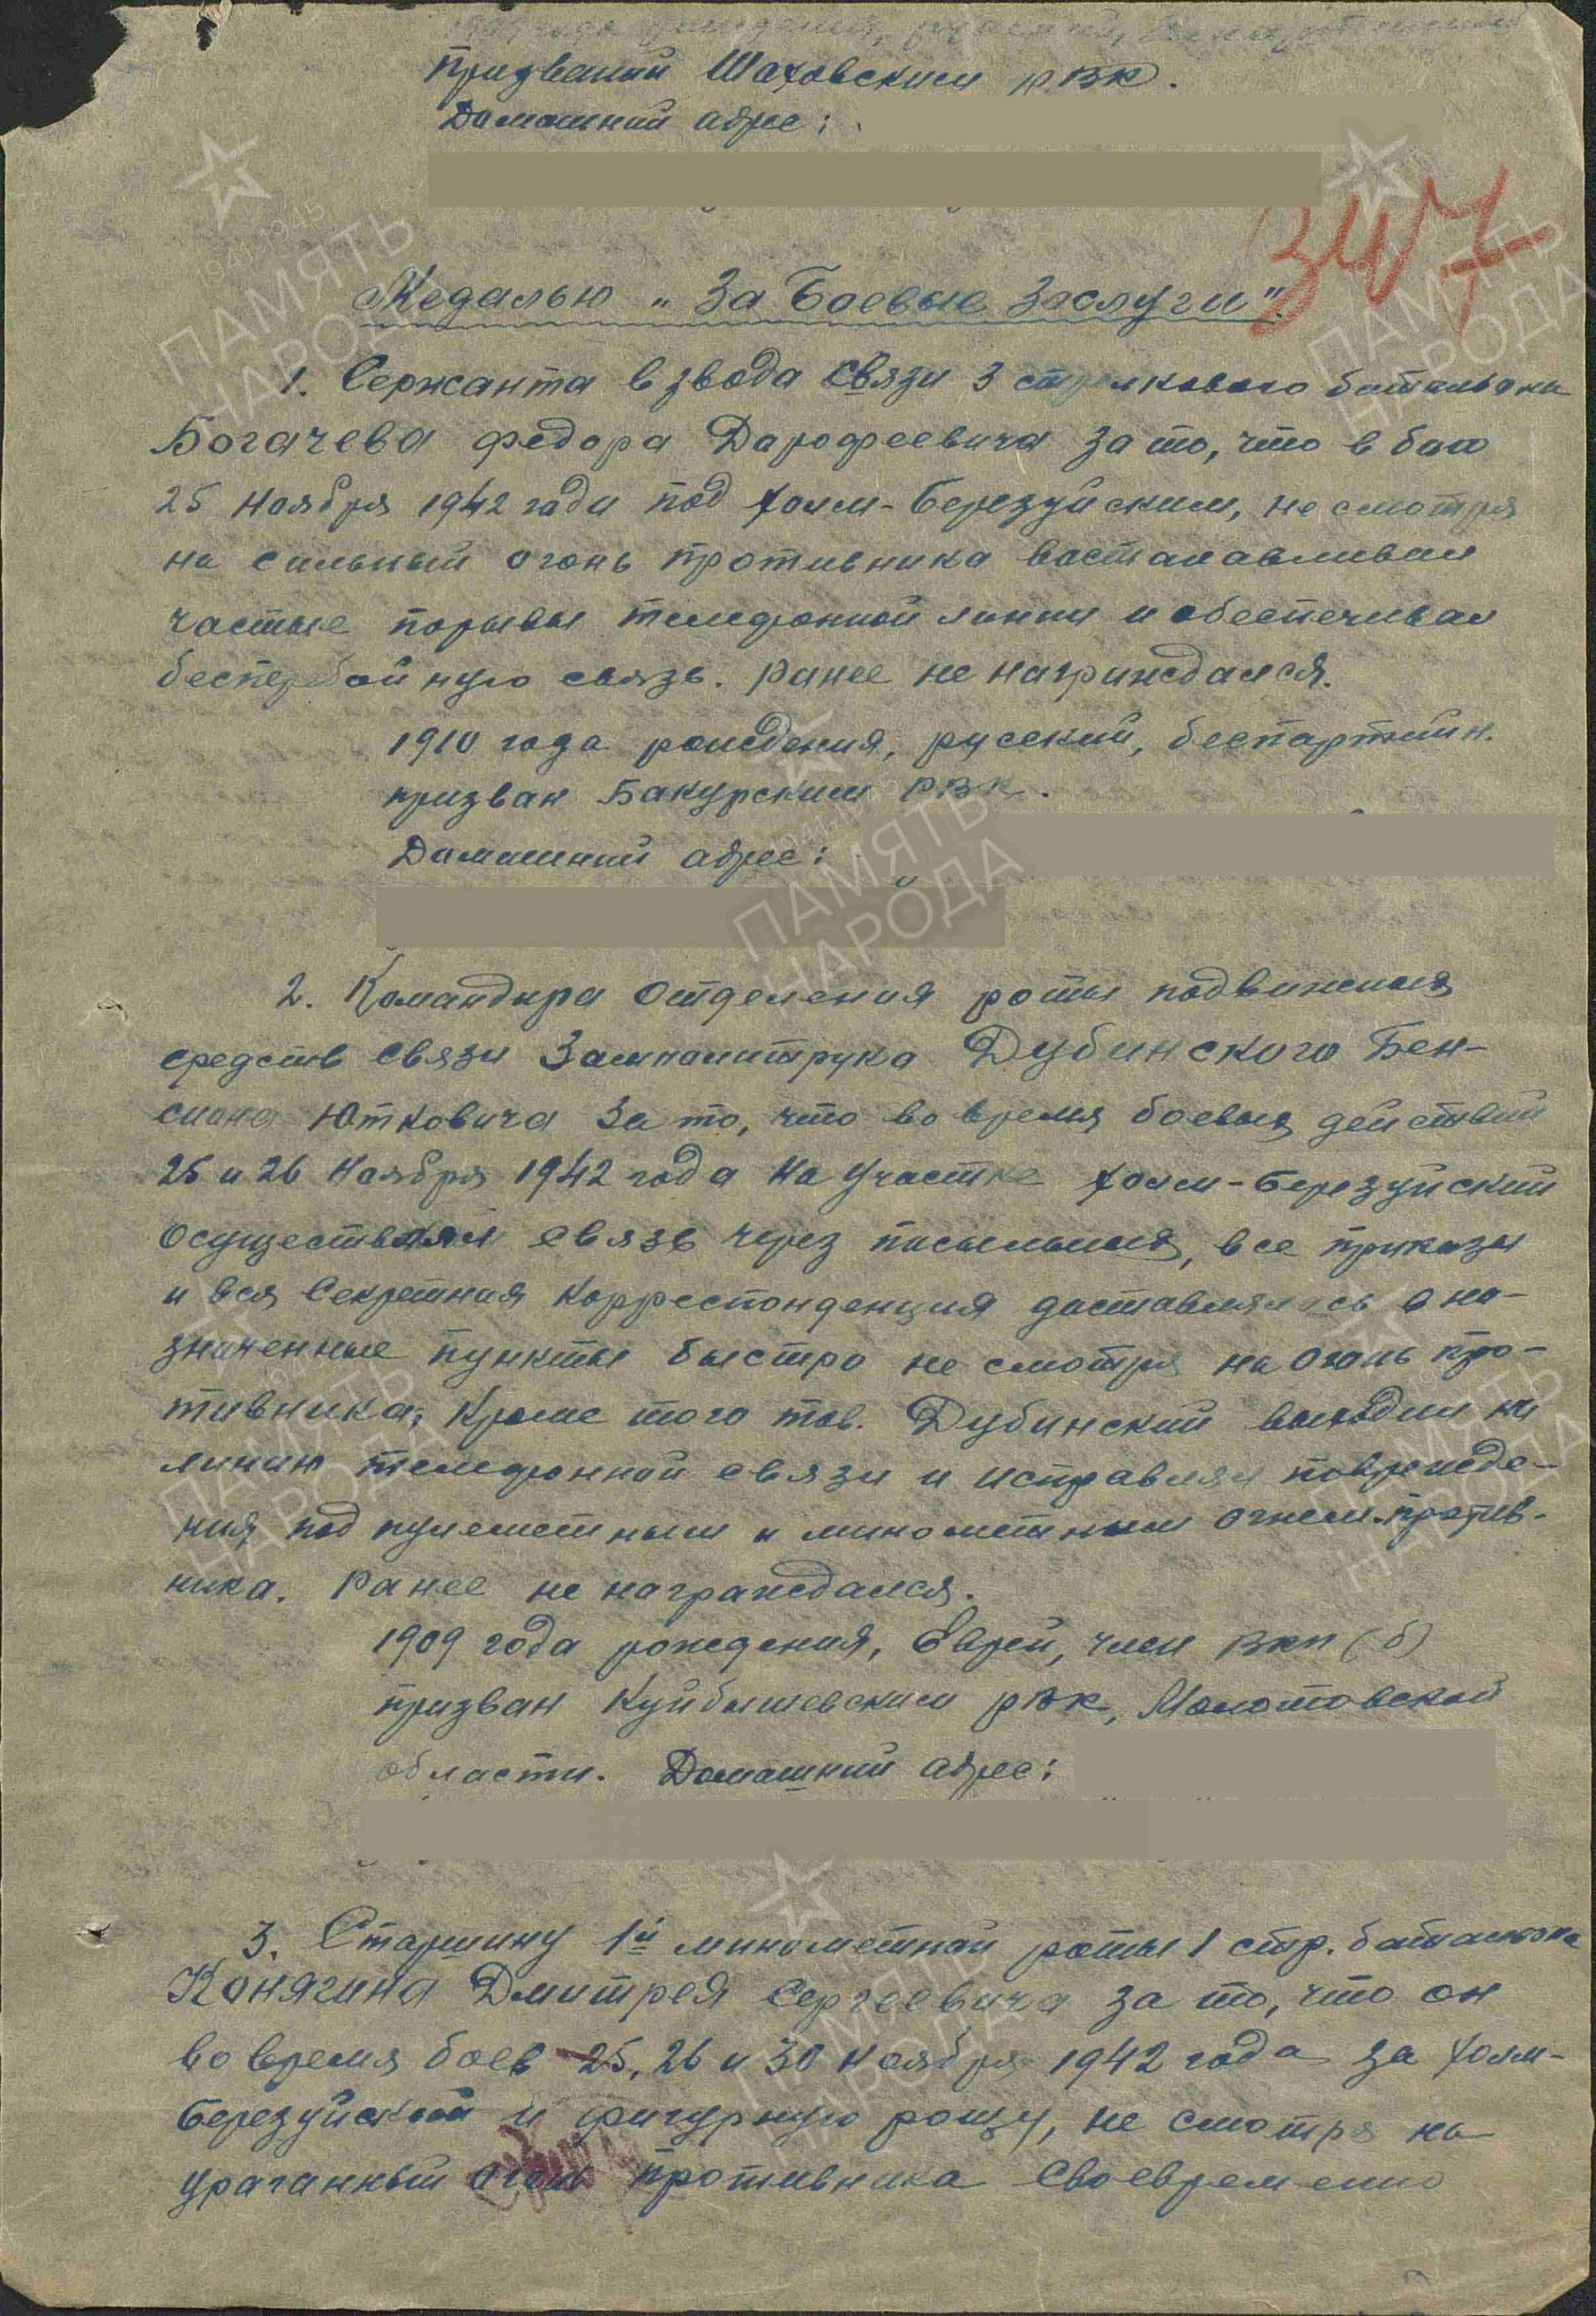 года рождения, русский,
Призванный Шаховским рвк.
Домашний адрес:
347
Медалью „За Боевые Заслуги".
1. Сержанта взвода связи 3 стрелкового батальона
Богачева Федора Дарофеевича за то, что в бою
25 ноября 1942 года под Холм-Березуйским, не смотря
на сильный огонь противника востанавливал
частые порывы телефонной линии и обеспечивал
бесперебойную связь. Ранее не награждался.
1910 года рождения, русский, беспартийн.
призван Бакурским РВК.
Домашний адрес:
2. Командира отделения роты подвижных
средств связи Замполитрука Дубинского Бен-
сиона Ютковича За то, что во время боевых действий
25 и 26 Ноября 1942 года на участке Холм-Березуйский
осуществлял связь через посыльных, все приказы
и вся Секретная корреспонденция доставлялась в на-
значенные пункты быстро не смотря на огонь про-
тивника; Кроме того тов. Дубинский выходил на
линию телефонной связи и исправлял поврежде-
ния под пулеметным и минометным огнем против-
ника. Ранее не награждался.
1909 года рождения, Еврей, член ВКП(б)
призван Куйбышевским рвк, Молотовской
области. Домашний адрес:
3. Старшину 1й минометной роты 1 стр. батальона
Конягина Дмитрея Сергеевича за то, что он
во время боев 25, 26 и 30 ноября 1942 года за Холм-
Березуйский и фигурную рощу, не смотря на
ураганный огонь противника Своевременно
ПАМЯТЬ
НАРОДА
1941-1945